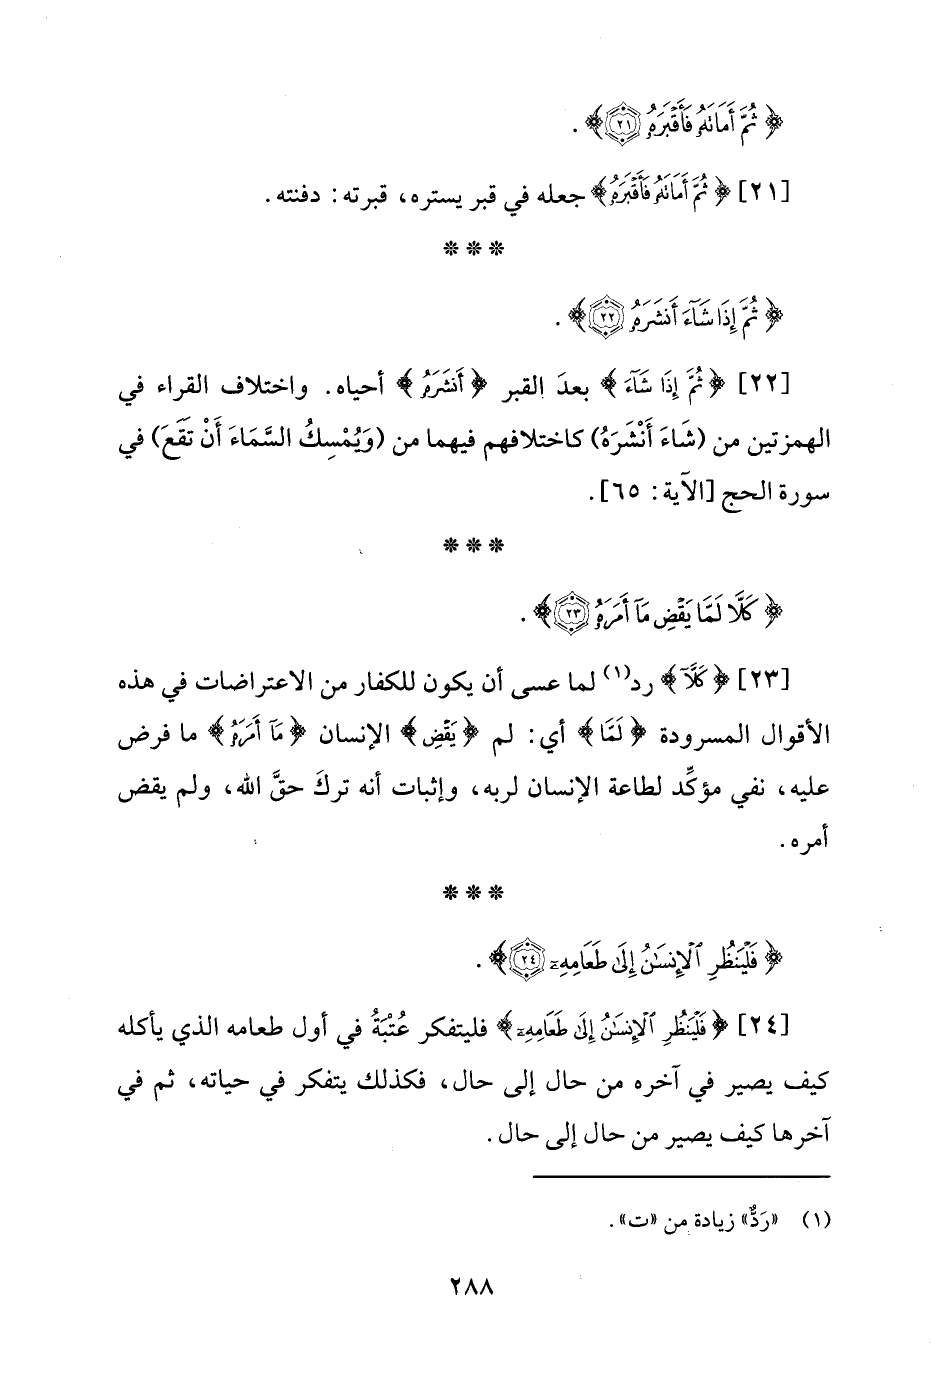 ﴿ ثُمَّ أَمَاتَهُ فَأَقْبَرَهُ ﴿٢١﴾ ﴾ .
[٢١] ﴿ ثُمَّ أَمَاتَهُ فَأَقْبَرَهُ ﴾ جعله في قبر يستره، قبرته: دفنته.
***
﴿ ثُمَّ إِذَا شَآءَ أَنشَرَهُ ﴿٢٢﴾ ﴾ .
[٢٢] ﴿ ثُمَّ إِذَا شَآءَ ﴾ بعدَ القبر ﴿ أَنشَرَهُ ﴾ أحياه. واختلاف القراء في
الهمزتين من (شَاءَ أَنْشَرَهُ) كاختلافهم فيهما من (وَيُمْسِكُ السَّمَاءَ أَنْ تَقَعَ) في
سورة الحج [الآية: ٦٥].
***
﴿ كَلَّا لَمَّا يَقْضِ مَآ أَمَرَهُ ﴿٢٣﴾ ﴾ .
[٢٣] ﴿ كَلَّا ﴾ رد(١) لما عسى أن يكون للكفار من الاعتراضات في هذه
الأقوال المسرودة ﴿ لَمَّا ﴾ أي: لم ﴿ يَقْضِ ﴾ الإنسان ﴿ مَآ أَمَرَهُ ﴾ ما فرض
عليه، نفي مؤكِّد لطاعة الإنسان لربه، وإثبات أنه تركَ حقَّ الله، ولم يقض
أمره.
***
﴿ فَلْيَنظُرِ ٱلْإِنسَٰنُ إِلَىٰ طَعَامِهِۦٓ ﴿٢٤﴾ ﴾ .
[٢٤] ﴿ فَلْيَنظُرِ ٱلْإِنسَٰنُ إِلَىٰ طَعَامِهِۦٓ ﴾ فليتفكر عُتْبَةُ في أول طعامه الذي يأكله
كيف يصير في آخره من حال إلى حال، فكذلك يتفكر في حياته، ثم في
آخرها كيف يصير من حال إلى حال.
(١) «رَدٌّ» زيادة من «ت».
٢٨٨